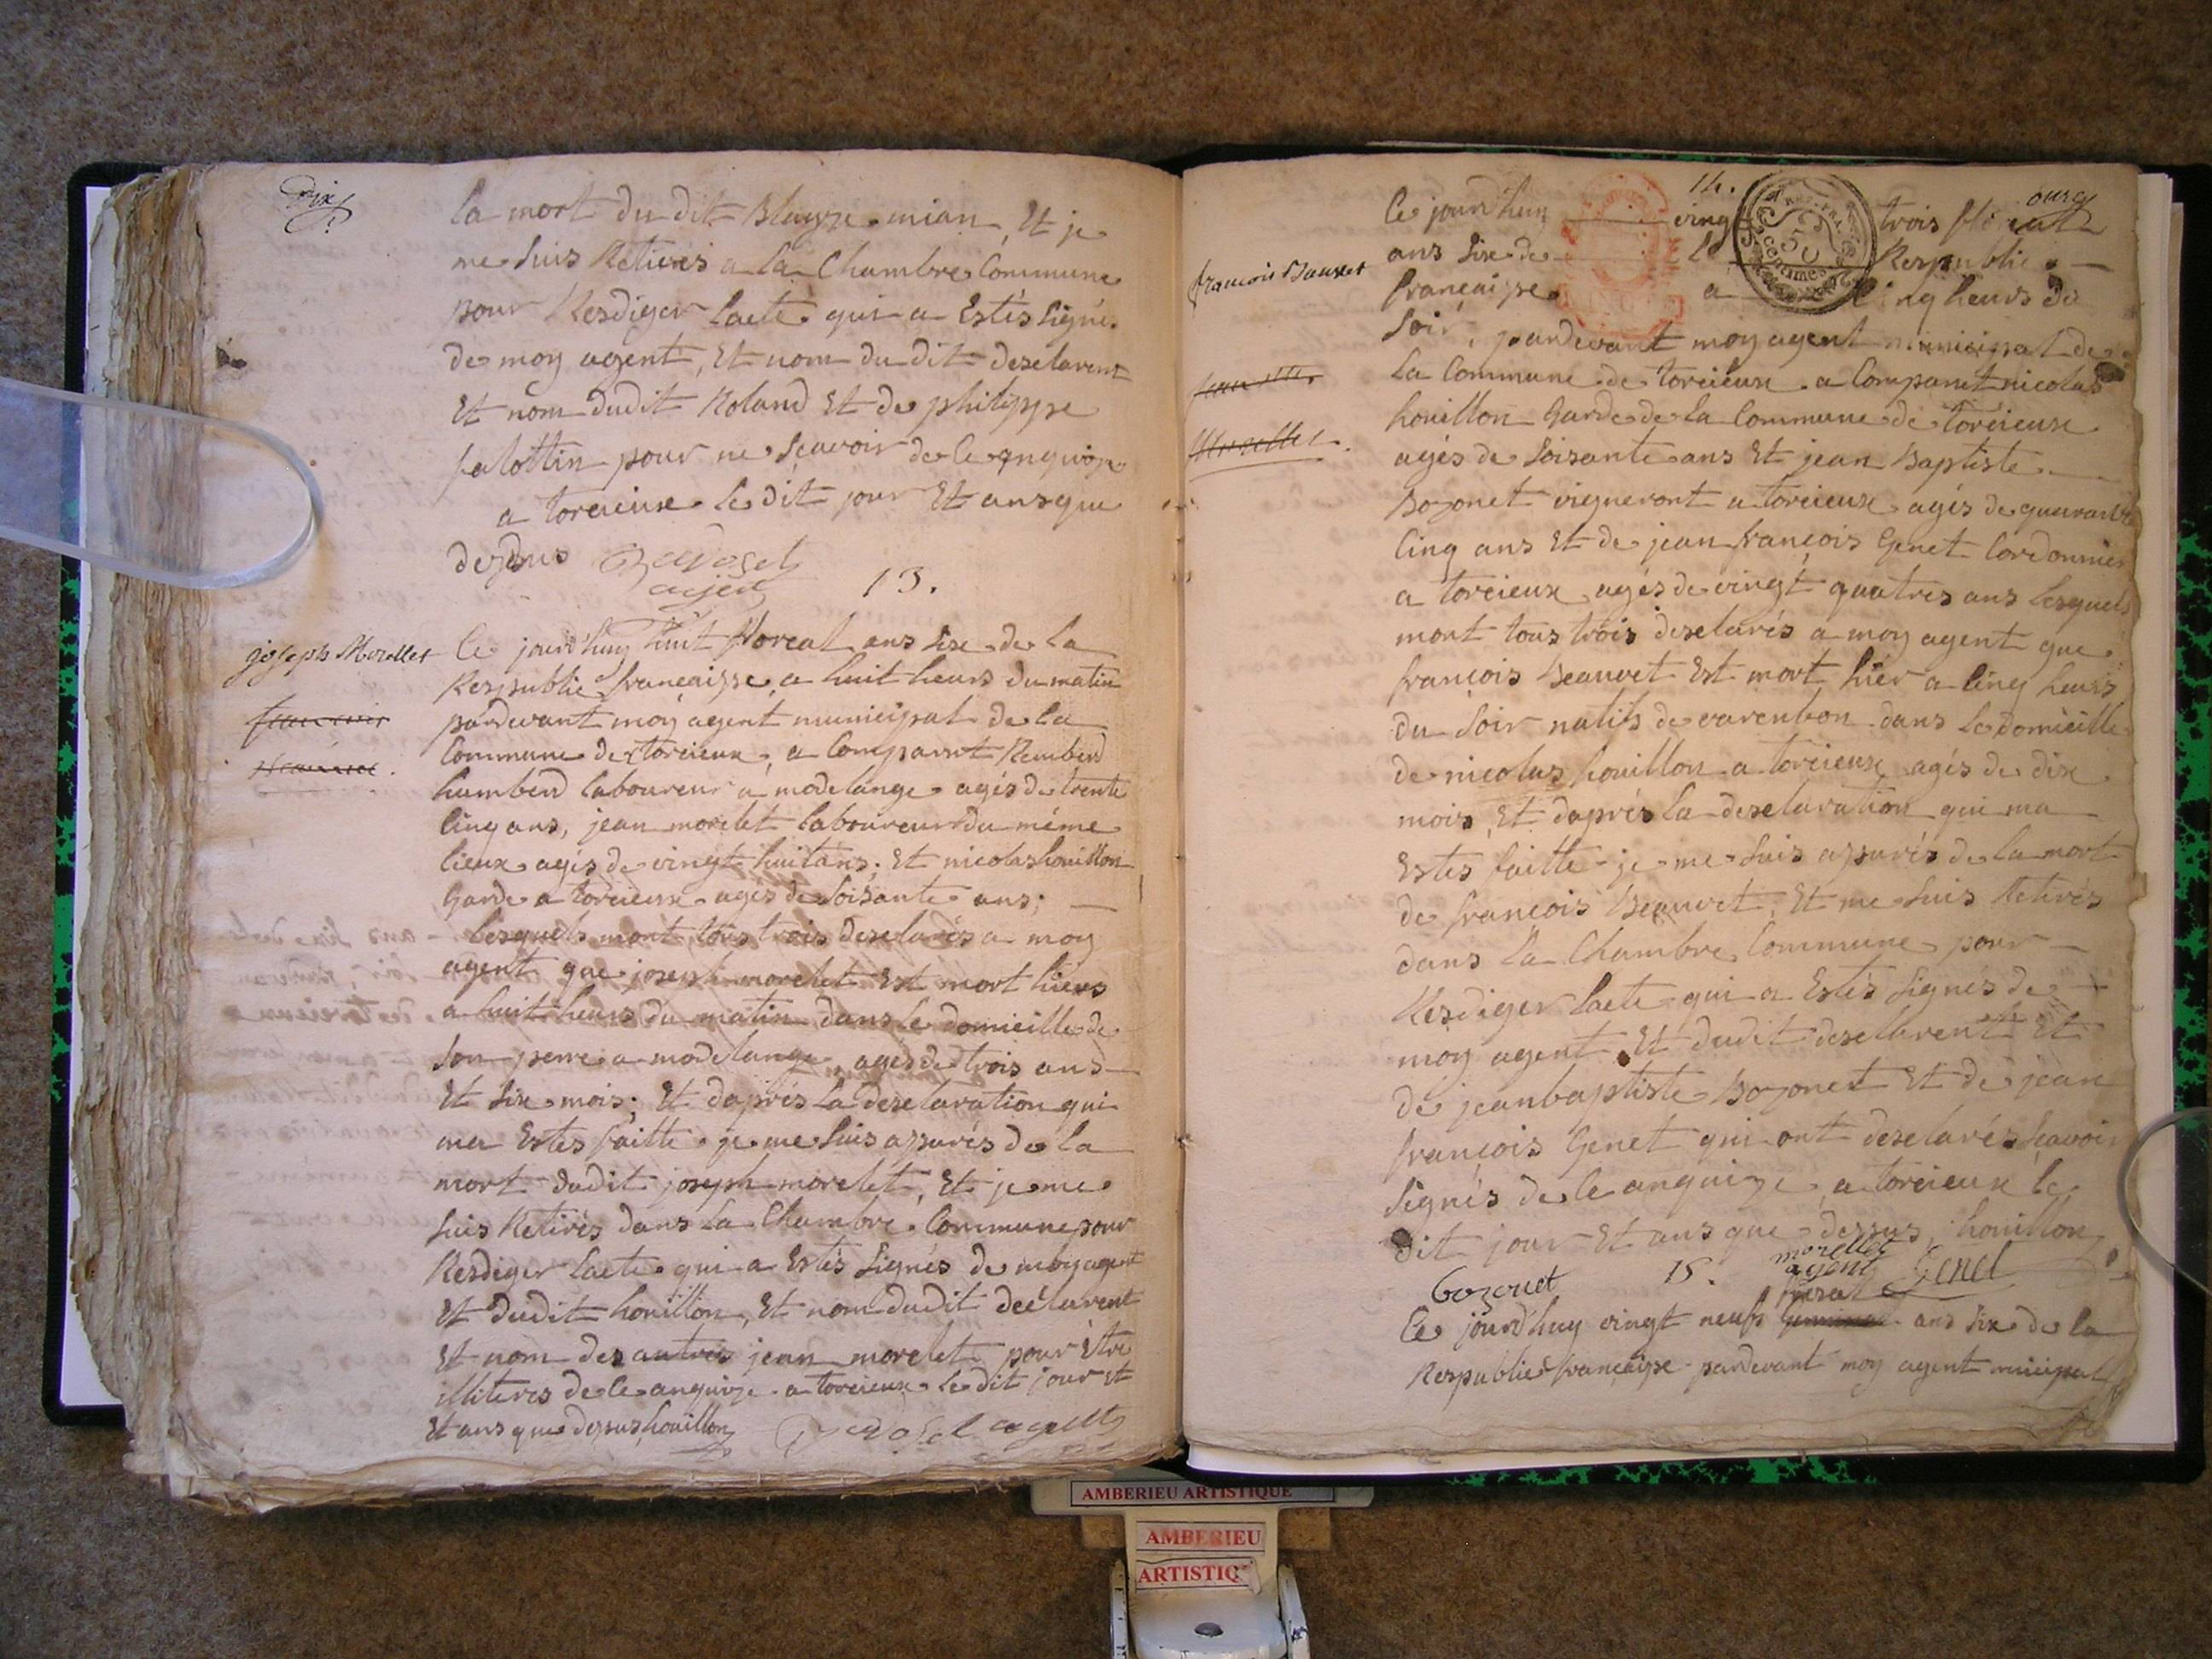 Dix
la mort du dit Blayze mian, Et je
me suis Retirés a la Chambre Commune
pour Resdiger lacte qui a Estés signés
de moy agent, Et nom du dit desclarent
Et nom dudit Roland Et de philippe
falottin pour ne sçavoir de ce enquize
a torcieux le dit jour Et ans que
dessus
13.
joseph Morellet
Ce jourd'huy huit floreal ans sixe de la
Respublic françaisse a huit heurs du matin
pardevant moy agent municipal de la
Commune de torcieux, a Comparut Rembend
humbend laboureur a modelange agés de trente
cinq ans, jean morelet laboureur du méme
lieux agés de vingt huit ans; Et nicolas houillon
garde a torcieux agés de soisante ans;
Lesquels mont tous trois desclarés a moy
agent que joseph morelet Est mort hiers
a huit heurs du matin dans le domicille de
son perre a modelange, agés de trois ans
Et sixe mois; Et daprés la desclaration qui
ma Estes faitte je me suis assurés de la
mort dudit joseph morelet, Et je me
suis Retirés dans la Chambre Commune pour
Resdiger lacte qui a Estés signés de moy agent
Et dudit houillon, Et nom dudit declarent
Et nom des autres jean morelet pour étre
illiteres de ce anquize a torcieux le dit jour Et
Et ans que dessus houillon
14.
REP. FRA.
50
centimes
francois Bauvet
Ce jourd'huy vingt trois floreal
ans sixe de la Respublic
française a cinq heurs du
soir, pardevant moy agent municipal de
la Commune de torcieux a Comparut nicolas
houillon Garde de la Commune de torcieux
agés de soisante ans Et jean Baptiste
Bozonet vigneront a torcieux agés de quarante
cinq ans Et de jean françois Genet Cordonnier
a torcieux agés de vingt quatres ans lesquels
mont tous trois desclarés a moy agent que
françois Beauvet Est mort hier a cinq heurs
du soir natifs de varenbon dans le domicille
de nicolas houillon a torcieux agés de dix
mois, Et daprés la desclaration qui ma
Estes faitte je me suis assurés de la mort
de françois Beauvet, Et me suis Retirés
dans la Chambre Commune pour
Resdiger lacte qui a Estés signés de
moy agent Et dudit desclarent Et
de jean baptiste Bozonet Et de jean
françois Genet qui ont desclarés sçavoir
signés de ce anquize a torcieux le
dit jour Et ans que dessus, houillon
bozonet morellet agent Genet
15.
Ce jourd'huy vingt neufs ans six de la
Respublic française pardevant moy agent municipal
AMBERIEU ARTISTIQUE
AMBERIEU
ARTISTIQ